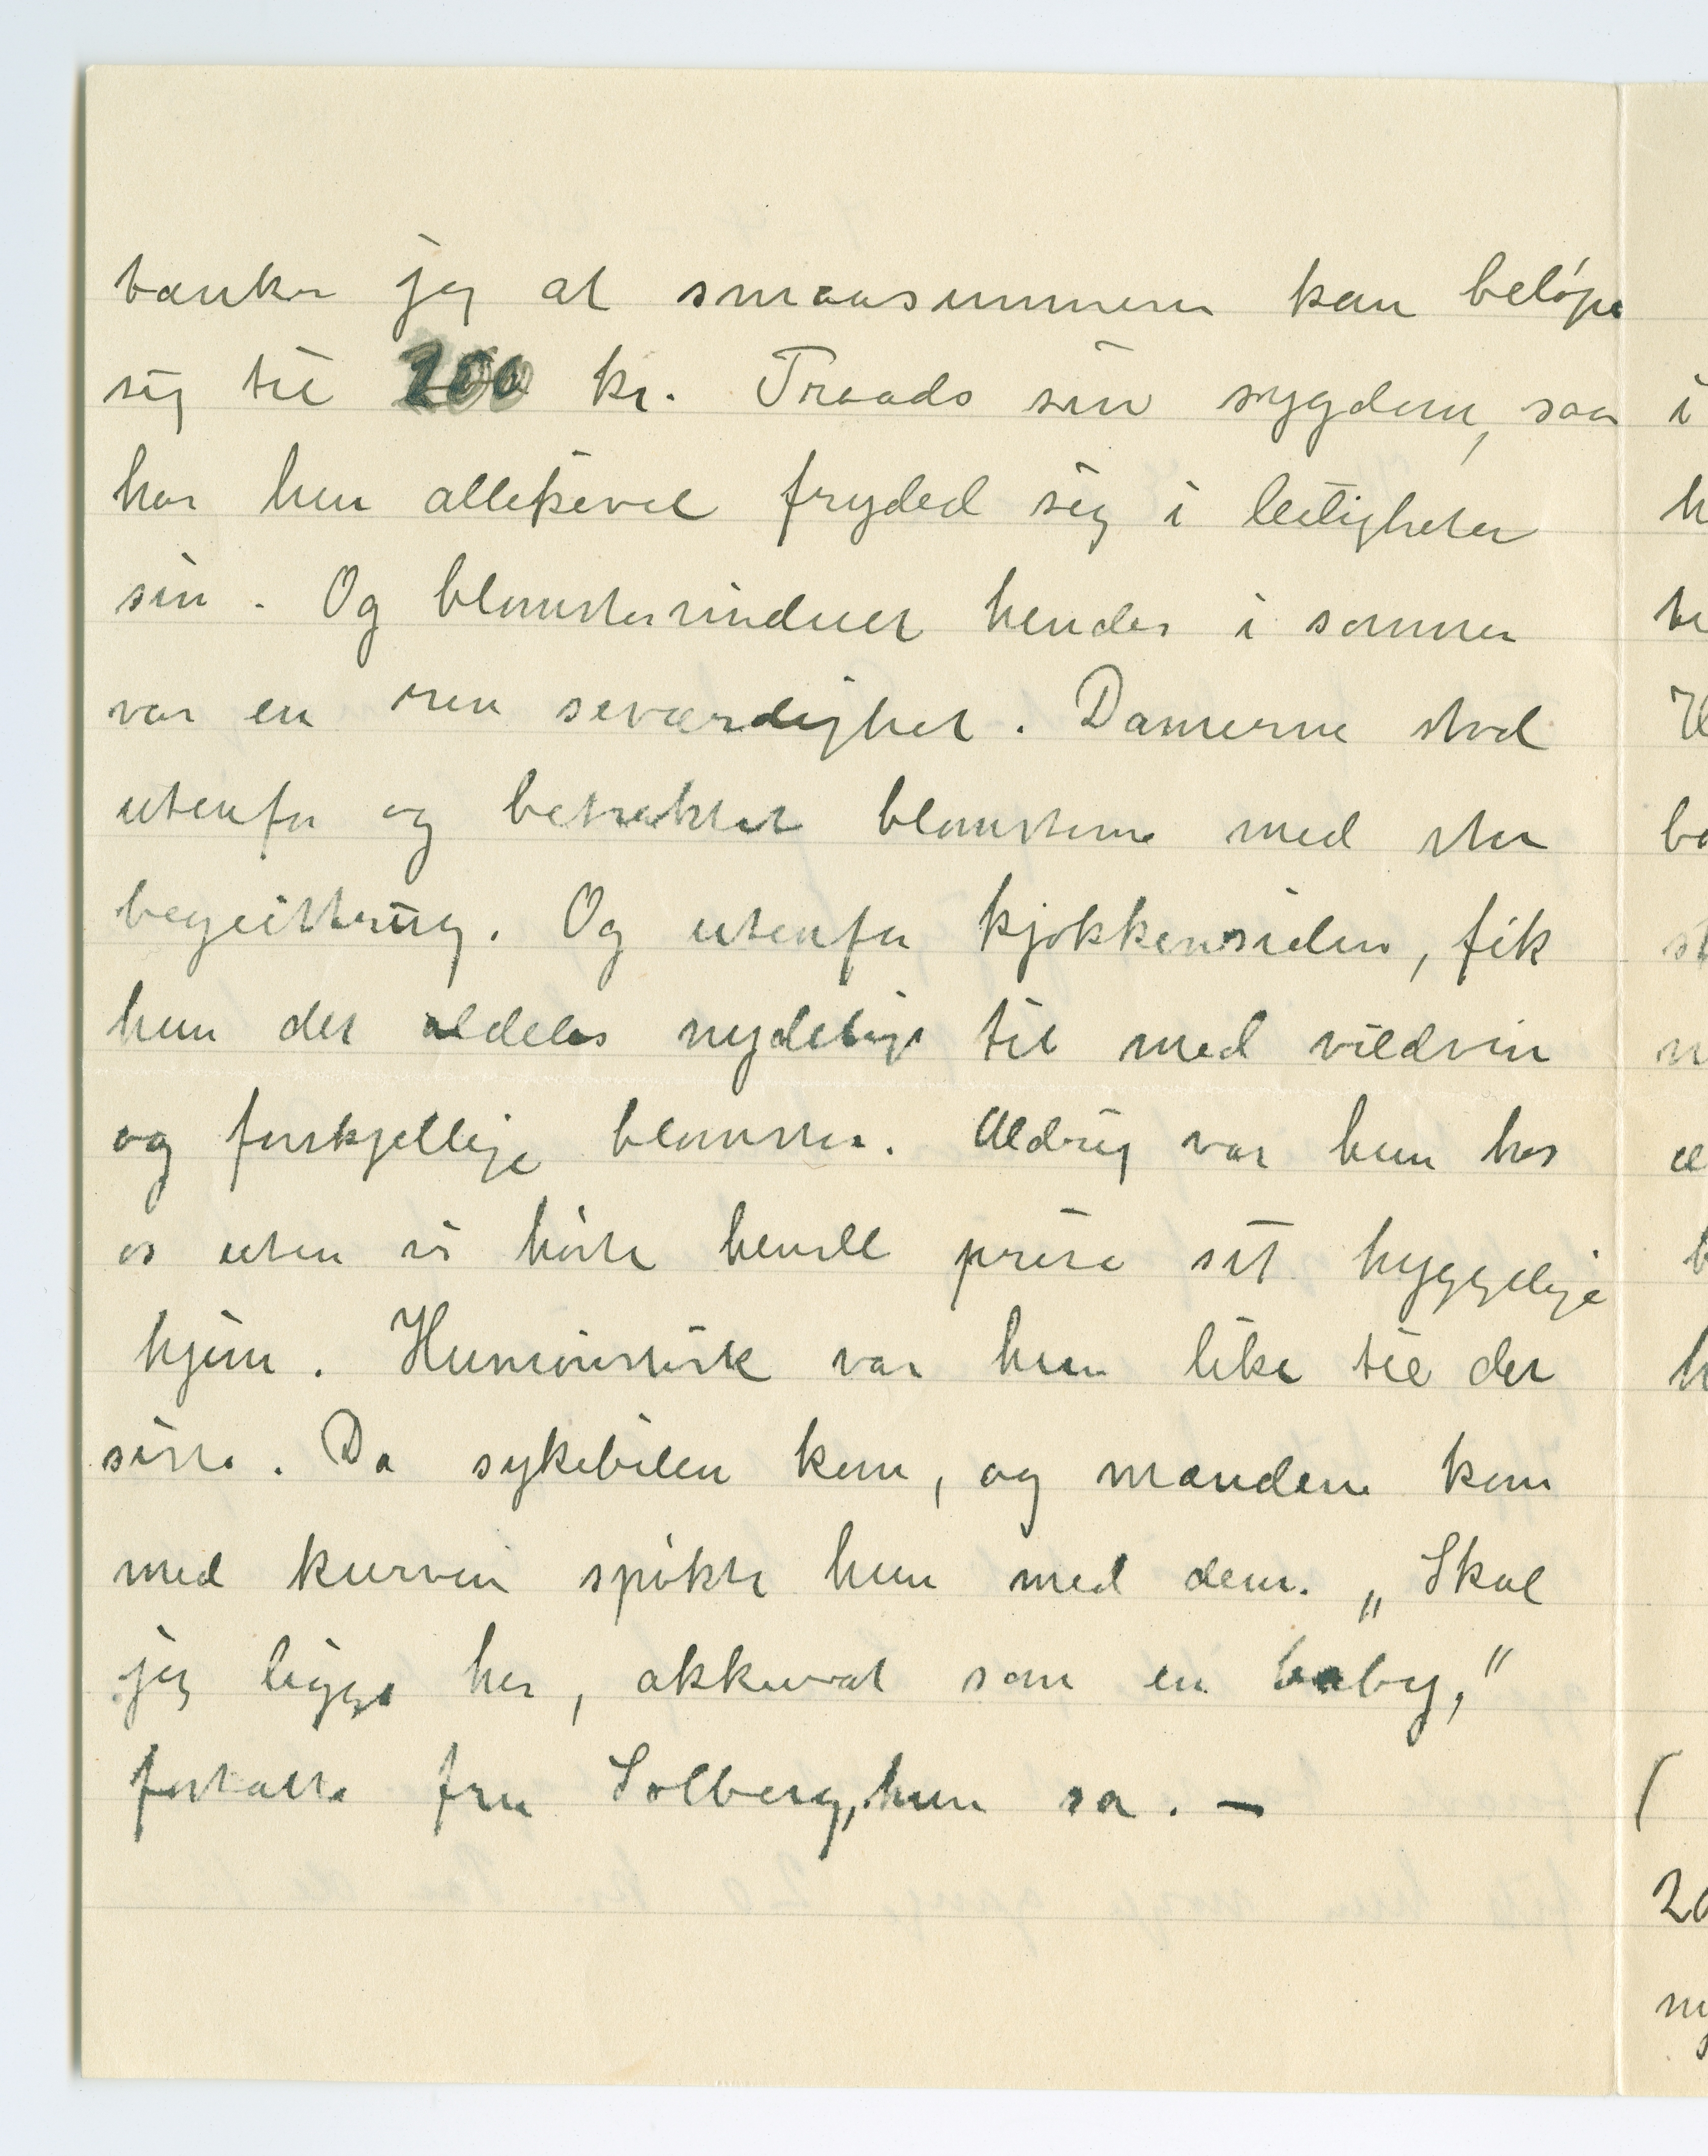 tænker jeg at smaasummene kan beløpe
sig til 200 kr. Traads sin sygdom, saa
har hun allikevel frydet sig i leiligheten
sin. Og blomstervinduet hendes i sommer
var en ren seværdighet. Damerne stod
utenfor og betraktet blomsterne med stor
begeistring. Og utenfor kjøkkensiden, fik
hun det aldeles nydelige til med vildvin
og forskjellige blomster. Aldrig var hun hos
os uten vi hørte hende prise sit hyggelige
hjem. Humoristisk var hun like til det
siste. Da sykebilen kom, og mændene kom
med kurven spøkte hun med dem. „Skal
jeg ligge her, akkurat som en baby,"
fortalte fru Solberg, hun sa. —